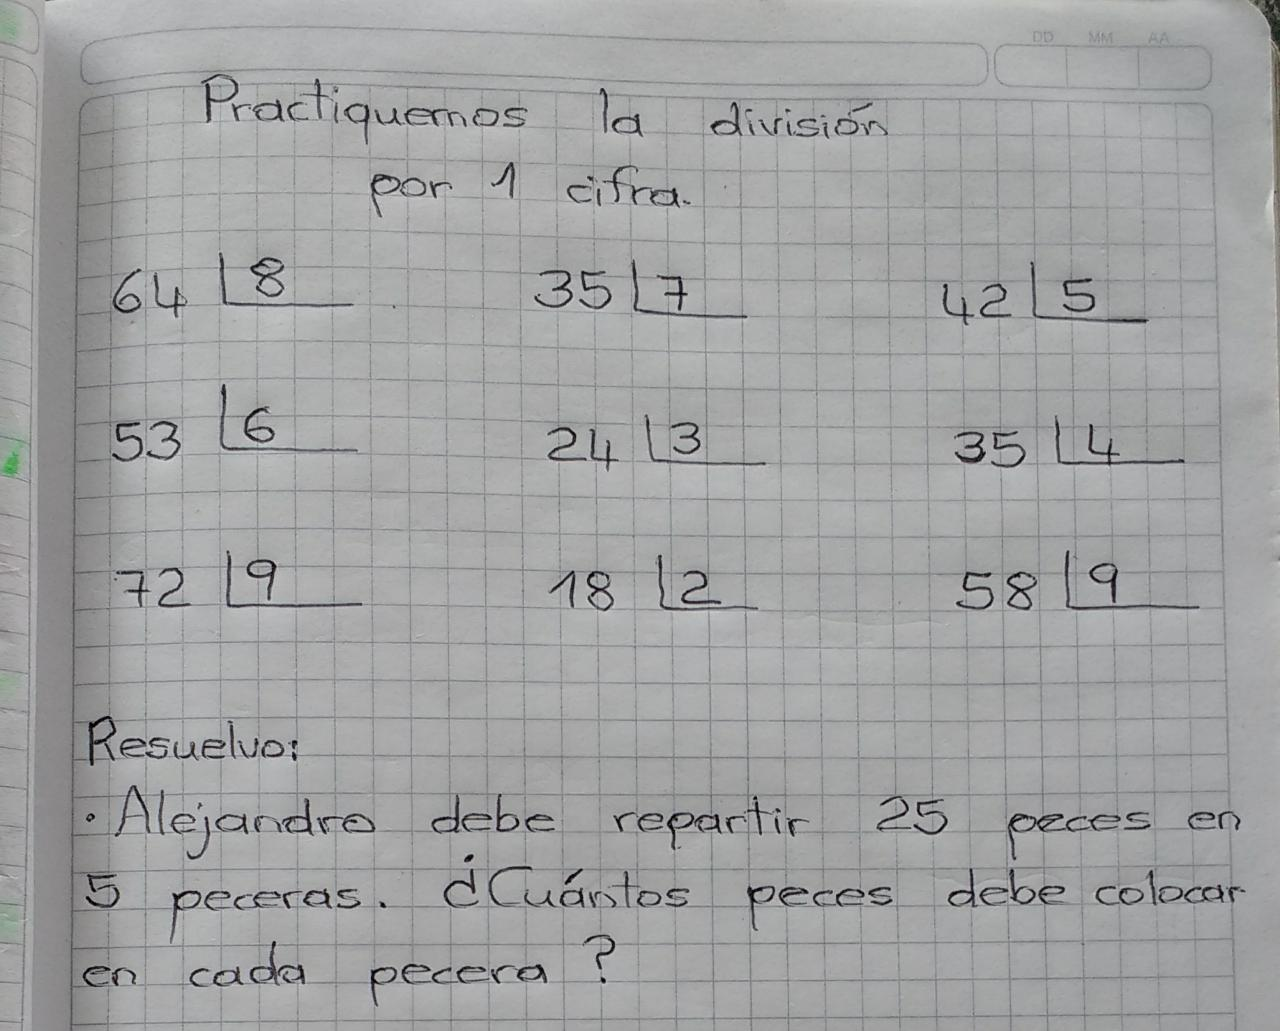 DD MM AA
Practiquemos la división
por 1 cifra.
64 8 35 7 42 5
53 6 24 3 35 4
72 9 18 2 58 9
Resuelvo:
• Alejandro debe repartir 25 peces en
5 peceras. ¿Cuántos peces debe colocar
en cada pecera ?